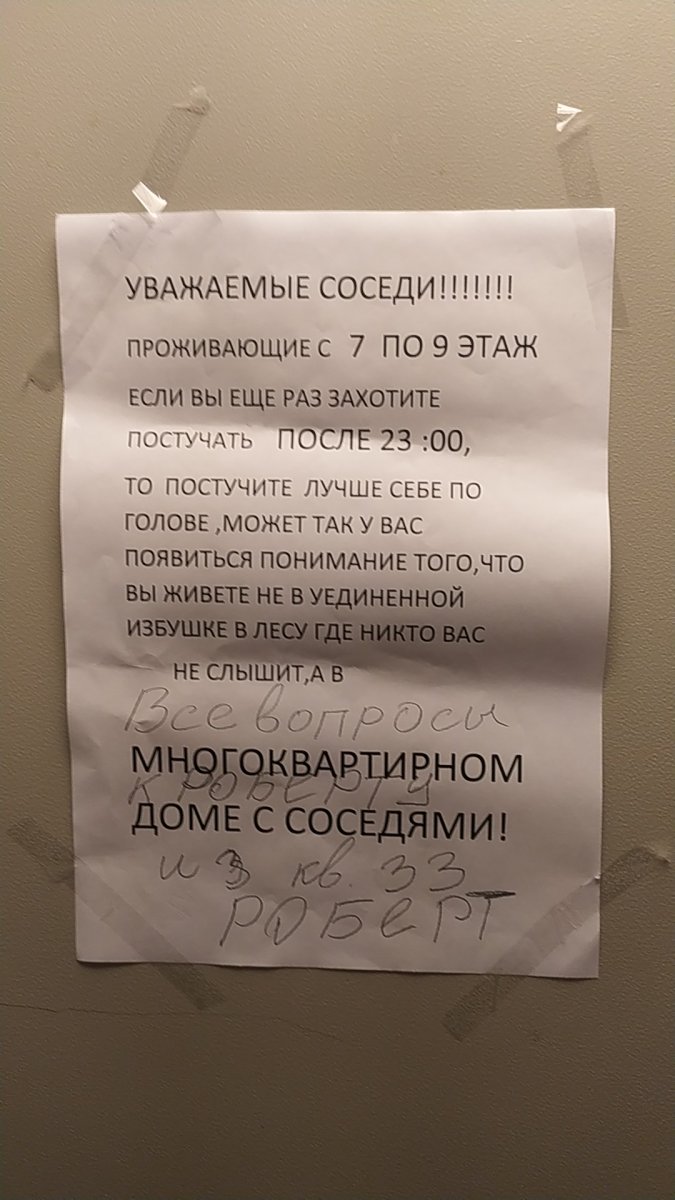 УВАЖАЕМЫЕ СОСЕДИ!!!!!!!
ПРОЖИВАЮЩИЕ С 7 ПО 9 ЭТАЖ
ЕСЛИ ВЫ ЕЩЕ РАЗ ЗАХОТИТЕ
ПОСТУЧАТЬ ПОСЛЕ 23 :00,
ТО ПОСТУЧИТЕ ЛУЧШЕ СЕБЕ ПО
ГОЛОВЕ ,МОЖЕТ ТАК У ВАС
ПОЯВИТЬСЯ ПОНИМАНИЕ ТОГО,ЧТО
ВЫ ЖИВЕТЕ НЕ В УЕДИНЕННОЙ
ИЗБУШКЕ В ЛЕСУ ГДЕ НИКТО ВАС
НЕ СЛЫШИТ,А В
Все вопросы
МНОГОКВАРТИРНОМ
к РОБЕРТУ
ДОМЕ С СОСЕДЯМИ!
из кв. 33
РОБЕРТ